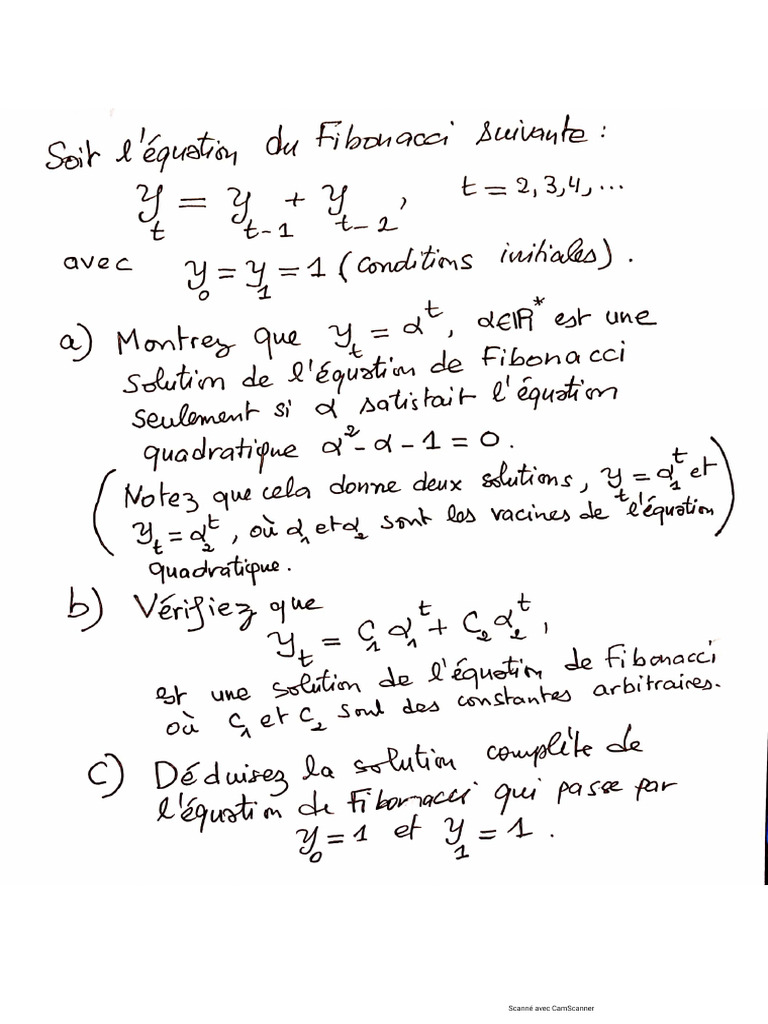 Soit l'équation du Fibonacci suivante :
y_t = y_{t-1} + y_{t-2}, t = 2,3,4,...
avec y_0 = y_1 = 1 (conditions initiales).
a) Montrez que y_t = α^t, α∈ℝ* est une
solution de l'équation de Fibonacci
seulement si α satisfait l'équation
quadratique α² - α - 1 = 0.
(Notez que cela donne deux solutions, y_t = α_1^t et
y_t = α_2^t, où α_1 et α_2 sont les racines de l'équation)
quadratique.
b) Vérifiez que
y_t = C_1 α_1^t + C_2 α_2^t,
est une solution de l'équation de Fibonacci
où C_1 et C_2 sont des constantes arbitraires.
c) Déduisez la solution complète de
l'équation de Fibornacci qui passe par
y_0 = 1 et y_1 = 1.
Scanné avec CamScanner